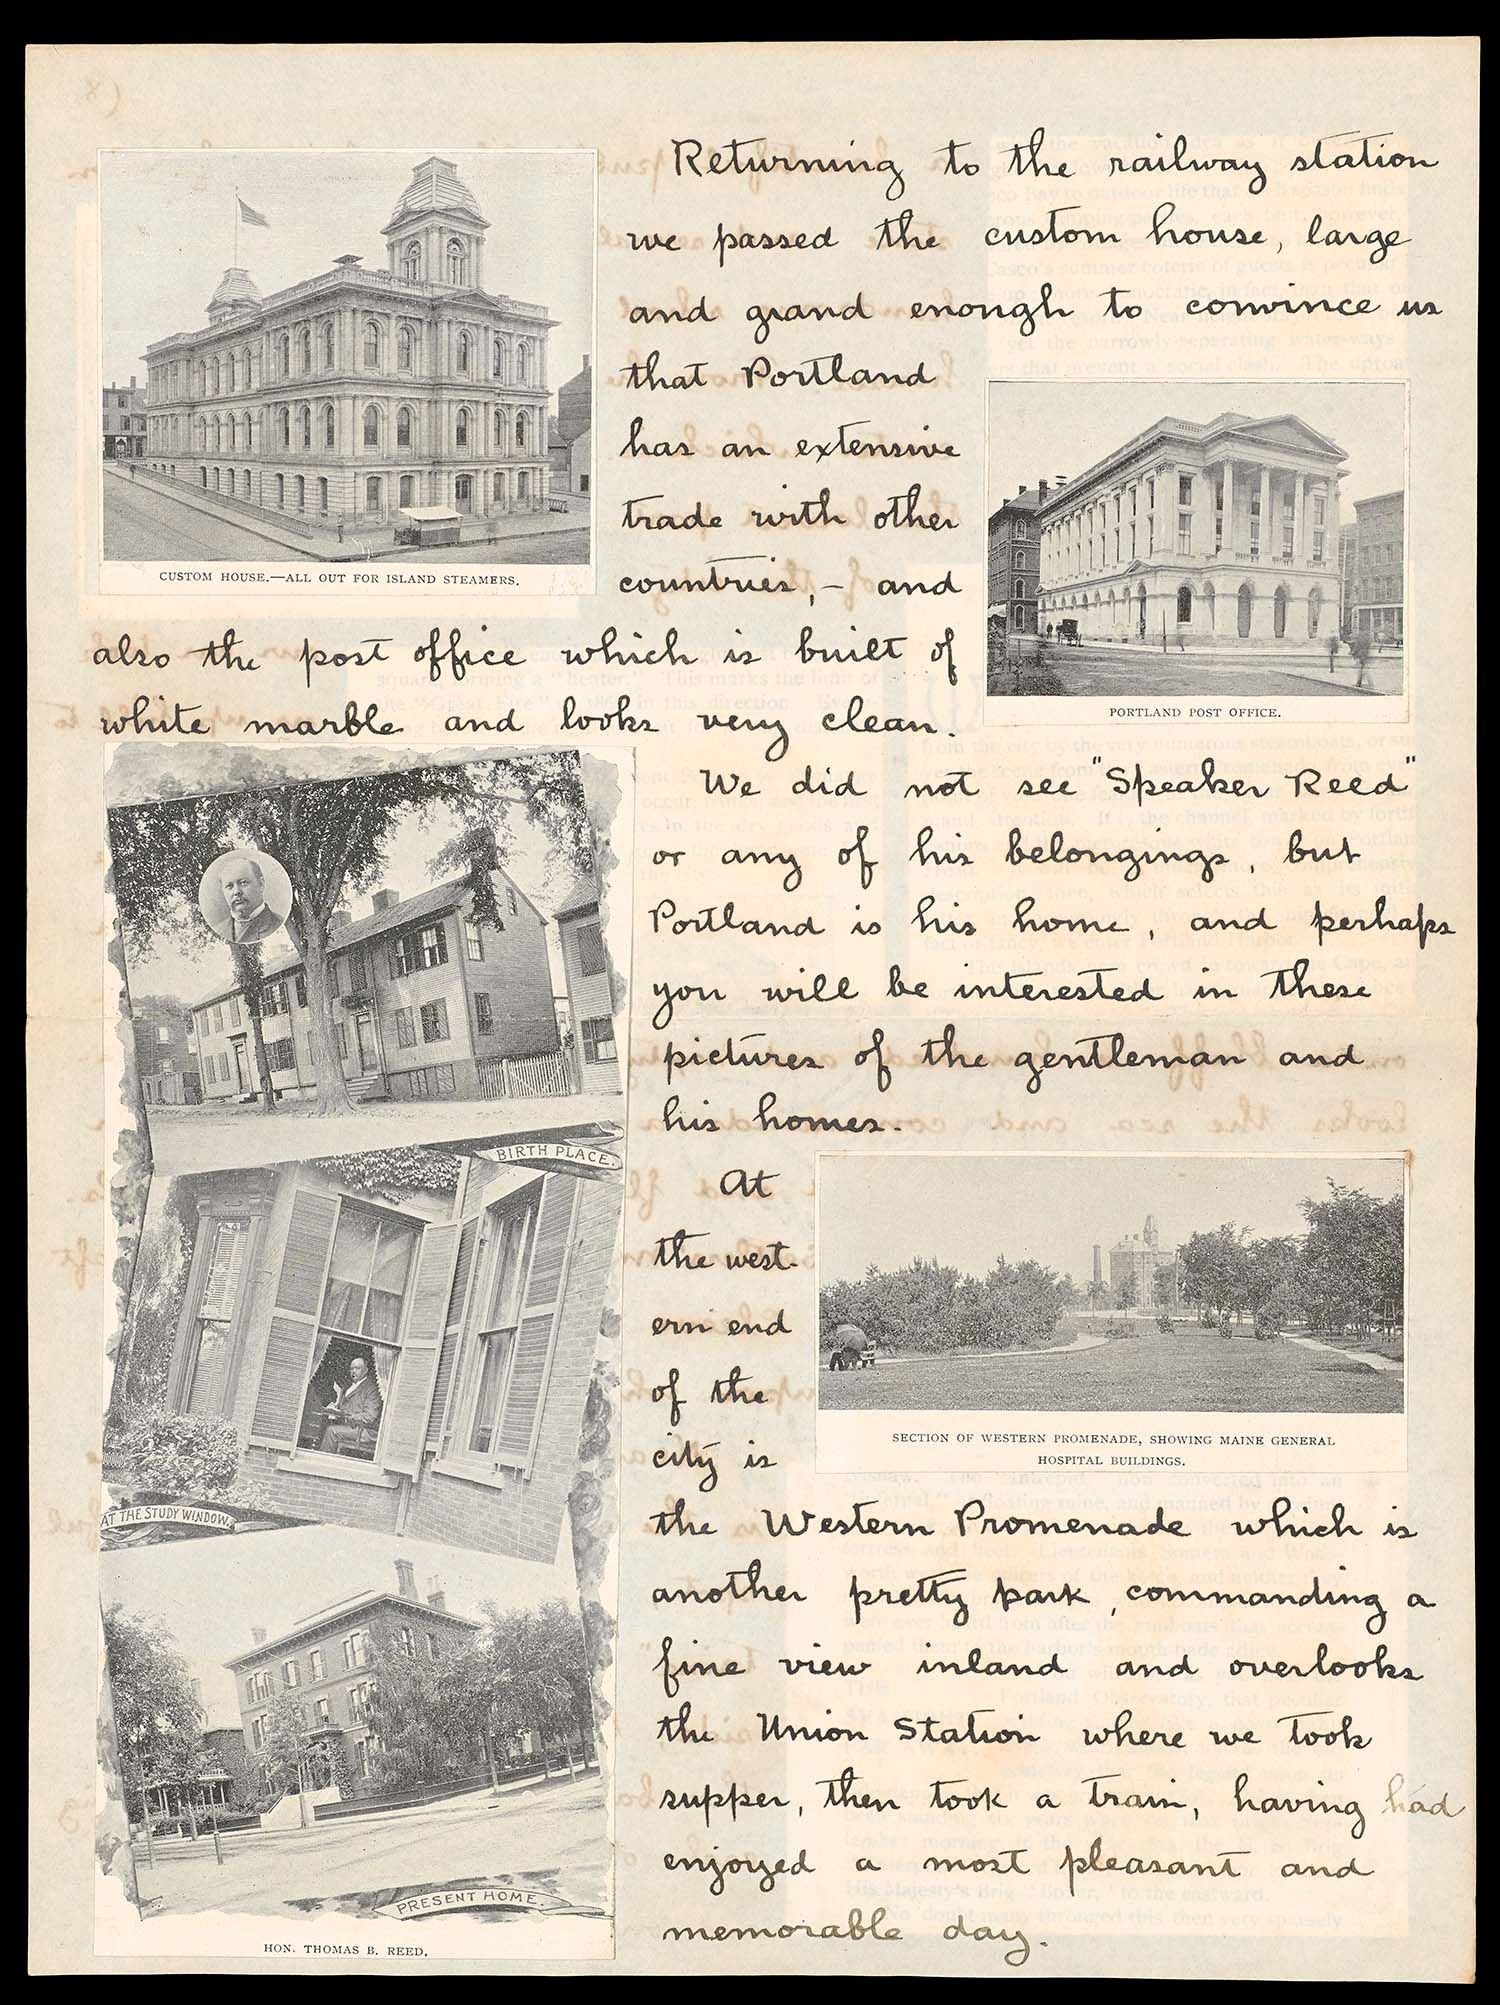 Returning to the railway station
we passed the custom house, large
and grand enough to convince us
that Portland
has an extensive
trade with other
countries, – and
also the post office which is built of
white marble and looks very clean.
CUSTOM HOUSE.—ALL OUT FOR ISLAND STEAMERS.
PORTLAND POST OFFICE.
We did not see "Speaker Reed"
or any of his belongings, but
Portland is his home, and perhaps
you will be interested in these
pictures of the gentleman and
his homes.
BIRTH PLACE.
AT THE STUDY WINDOW.
PRESENT HOME.
HON. THOMAS B. REED.
At
the west-
ern end
of the
city is
SECTION OF WESTERN PROMENADE, SHOWING MAINE GENERAL
HOSPITAL BUILDINGS.
the Western Promenade which is
another pretty park, commanding a
fine view inland and overlooks
the Union Station where we took
supper, then took a train, having had
enjoyed a most pleasant and
memorable day.